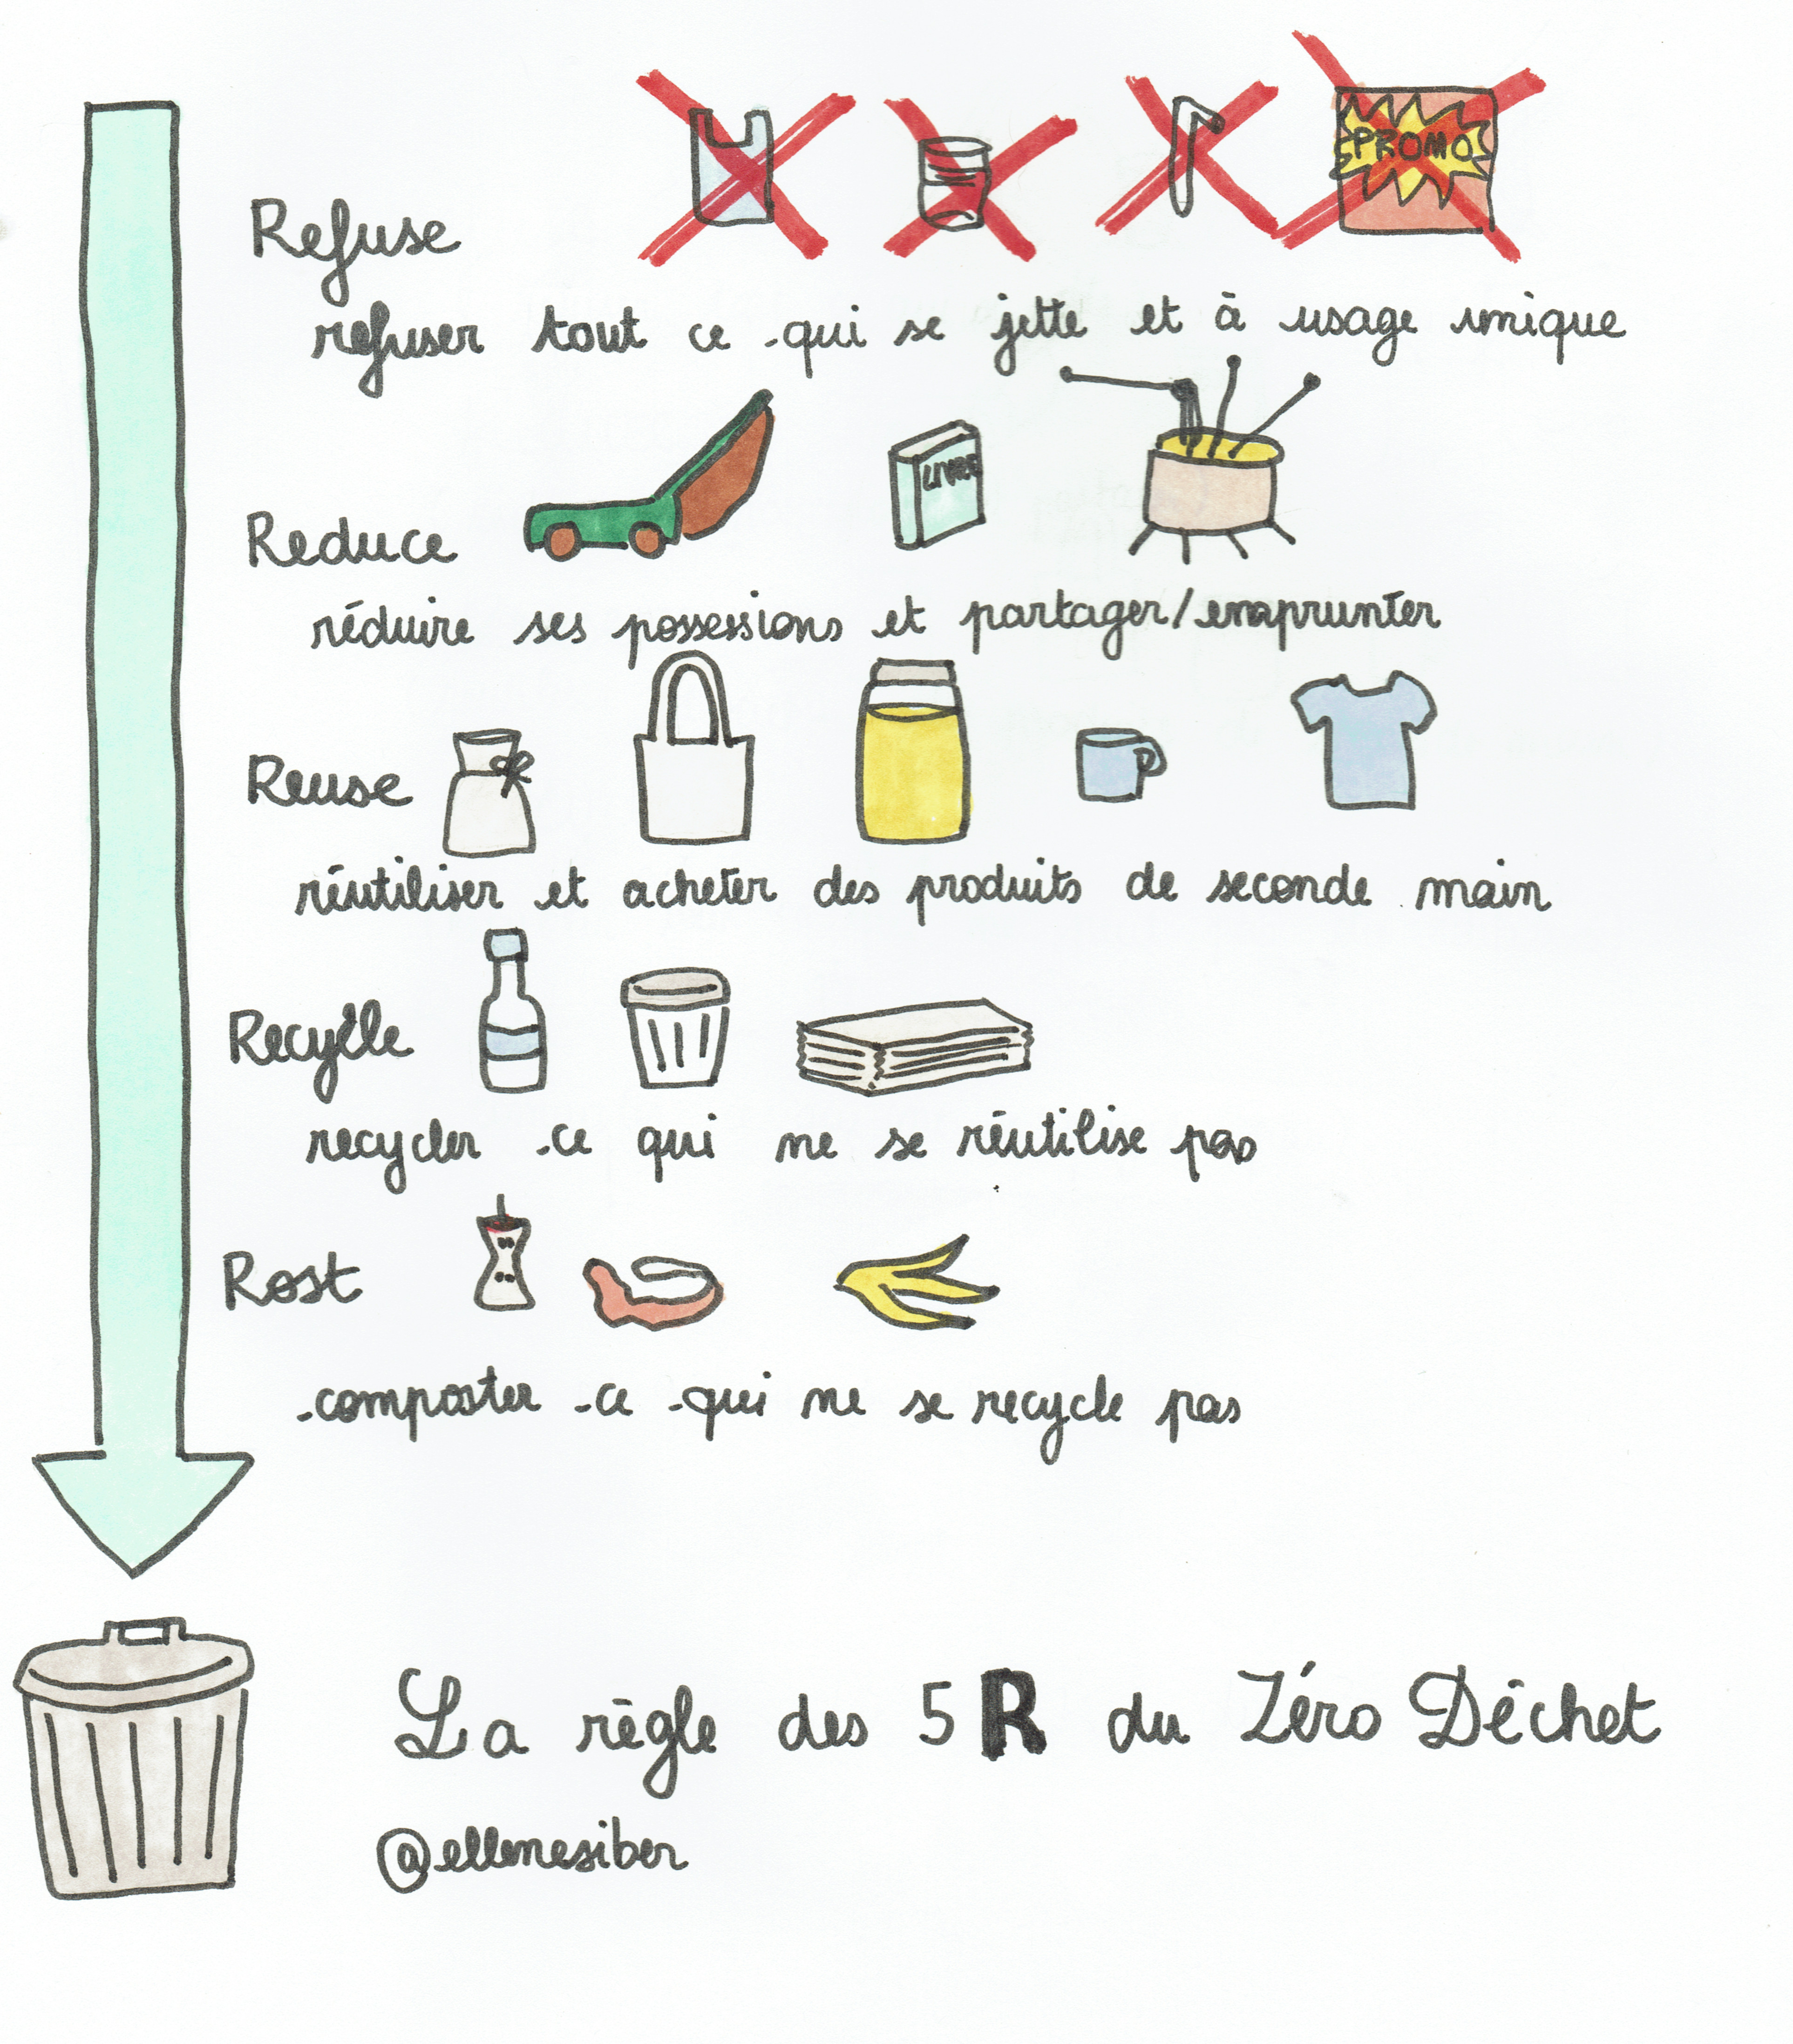 PROMO
Refuse
refuser tout ce qui se jette et à usage unique
LIVRE
Reduce
réduire ses possessions et partager/emprunter
Reuse
réutiliser et acheter des produits de seconde main
Recycle
recycler ce qui ne se réutilise pas
Rost
composter ce qui ne se recycle pas
La règle des 5 R du Zéro Déchet
@ellenesiber